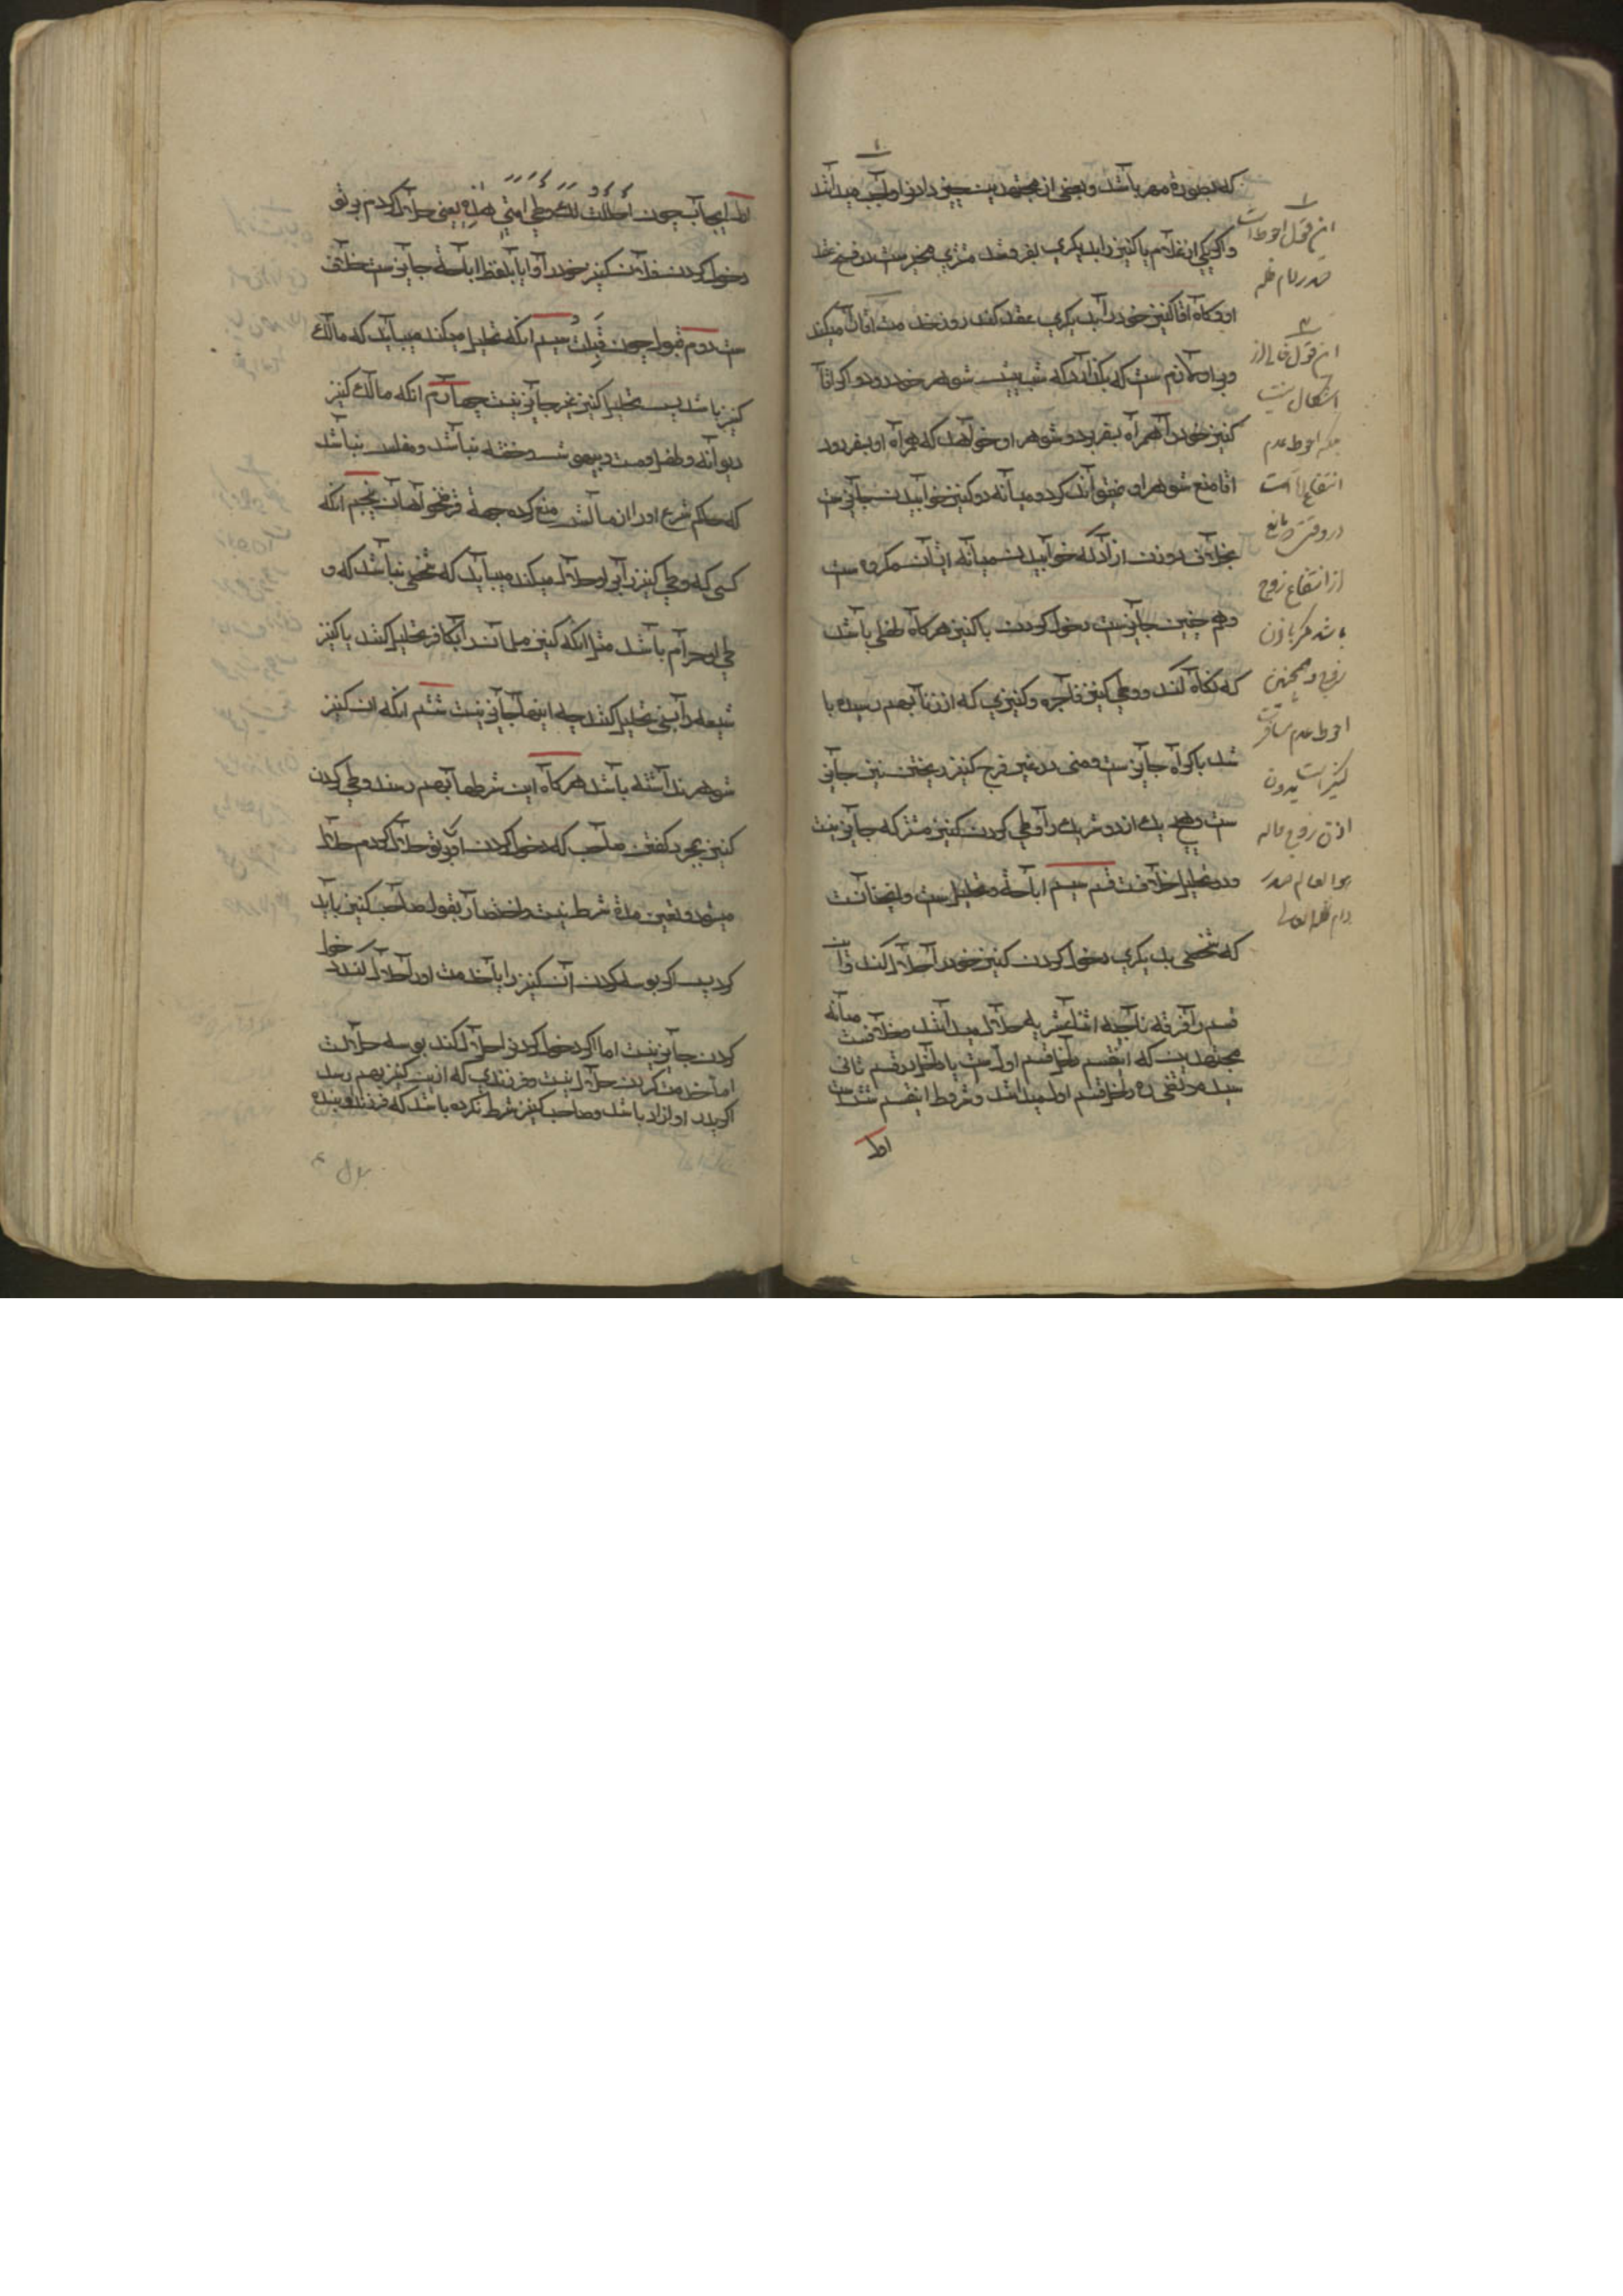 که بصورة مهر باشد و بعضی از مجتهدین چیزی دادن را واجب میدانند
و اگر یکی از غلام یا کنیز را بدیگری بفروشد مشتری مخیرست در فسخ عقد
او و گاه اقا کنیز خود را بدیگری عقد کند روز خدمت اقا ان میکند
و بر او لازم ست که بگذارد که شب پیش شوهر خود رود و اگر اقا
کنیز خود را همراه بسفر برد و شوهر او خواهد که همراه او بسفر رود
اقا منع شوهر او نمیتواند کرد و میانه دو کنیز خوابیدن جایز ست
بخلاف دو زن ازاد که خوابیدن میانه ایشان مکروه ست
و هم چنین جایز ست دخول کردن با کنیز هر گاه طفلی باشد
که نگاه کند و وطی کنیز فاجره و کنیزی که از زنا بهم رسیده با
شد با کراه جایز ست و منی در غیر فرج کنیز ریختن نیز جایز
ست و هیچ یک از دو شریک را وطی کردن کنیز مشترکه جایز نیست
و در تحلیل خلافست قسم سیم اباحة و تحلیل ست و این انست
که شخصی بدیگری دخول کردن کنیز خود را حلال کند و این
قسم را فرقه ناجیه اثنا عشریه حلال میدانند و خلافست میانه
مجتهدین که این قسم داخل قسم اول ست یا داخل در قسم ثانی
سید مرتضی ره داخل قسم اول میداند و شروط این قسم شش ست
اول
۱
این قول احوط است
صدر دام ظله
۲
این قول خالی از
اشکال نیست
بلکه احوط عدم
انتفاع اقا است
در وقتی که مانع
از انتفاع زوج
باشد مگر باذن
زوج و همچنین
احوط عدم مسافرت
کنیز است بدون
اذن زوج و اله
هو العالم صدر
دام ظله العالی
اول ایجاب چون احللت لک وطی امتی هذه یعنی حلال کردم بر تو
دخول کردن فلان کنیز خود را و ایا بلفظ اباحة جایز ست خلافی
ست دوم قبول چون قبلت سیم انکه تحلیل میکند میباید که مالک
کنیز باشد پس تحلیل کنیز غیر جایز نیست چهارم انکه مالک کنیز
دیوانه و طفل و مست و بیهوش و خفته نباشد و مفلس نباشد
که حاکم شرع او را از مالش منع کرده جهة قرض خواهان پنجم انکه
کسی که وطی کنیز را بر او حلال میکند میباید که شخصی نباشد که و
طی او حرام باشد مثل انکه کنیز مسلمان را بکافر تحلیل کنند یا کنیز
شیعه را بسنی تحلیل کنند چه اینها جایز نیست ششم انکه ان کنیز
شوهر نداشته باشد هر گاه این شرطها بهم رسند وطی کردن
کنیز بمجرد گفتن صاحب که دخول کردن او بر تو حلال کردم حلال
میشود و تعیین مدة شرط نیست و اختصار بقول صاحب کنیز باید
کرد پس اگر بوسه کردن ان کنیز را یا خدمت او را حلال کند دخول
کردن جایز نیست اما اگر دخول کردن را حلال کند بوسه حلالست
اما خدمت کردن حلال نیست و فرزندی که از این کنیز بهم رسد
اگر پدر او ازاد باشد و صاحب کنیز شرط نکرده باشد که فرزند او بنده